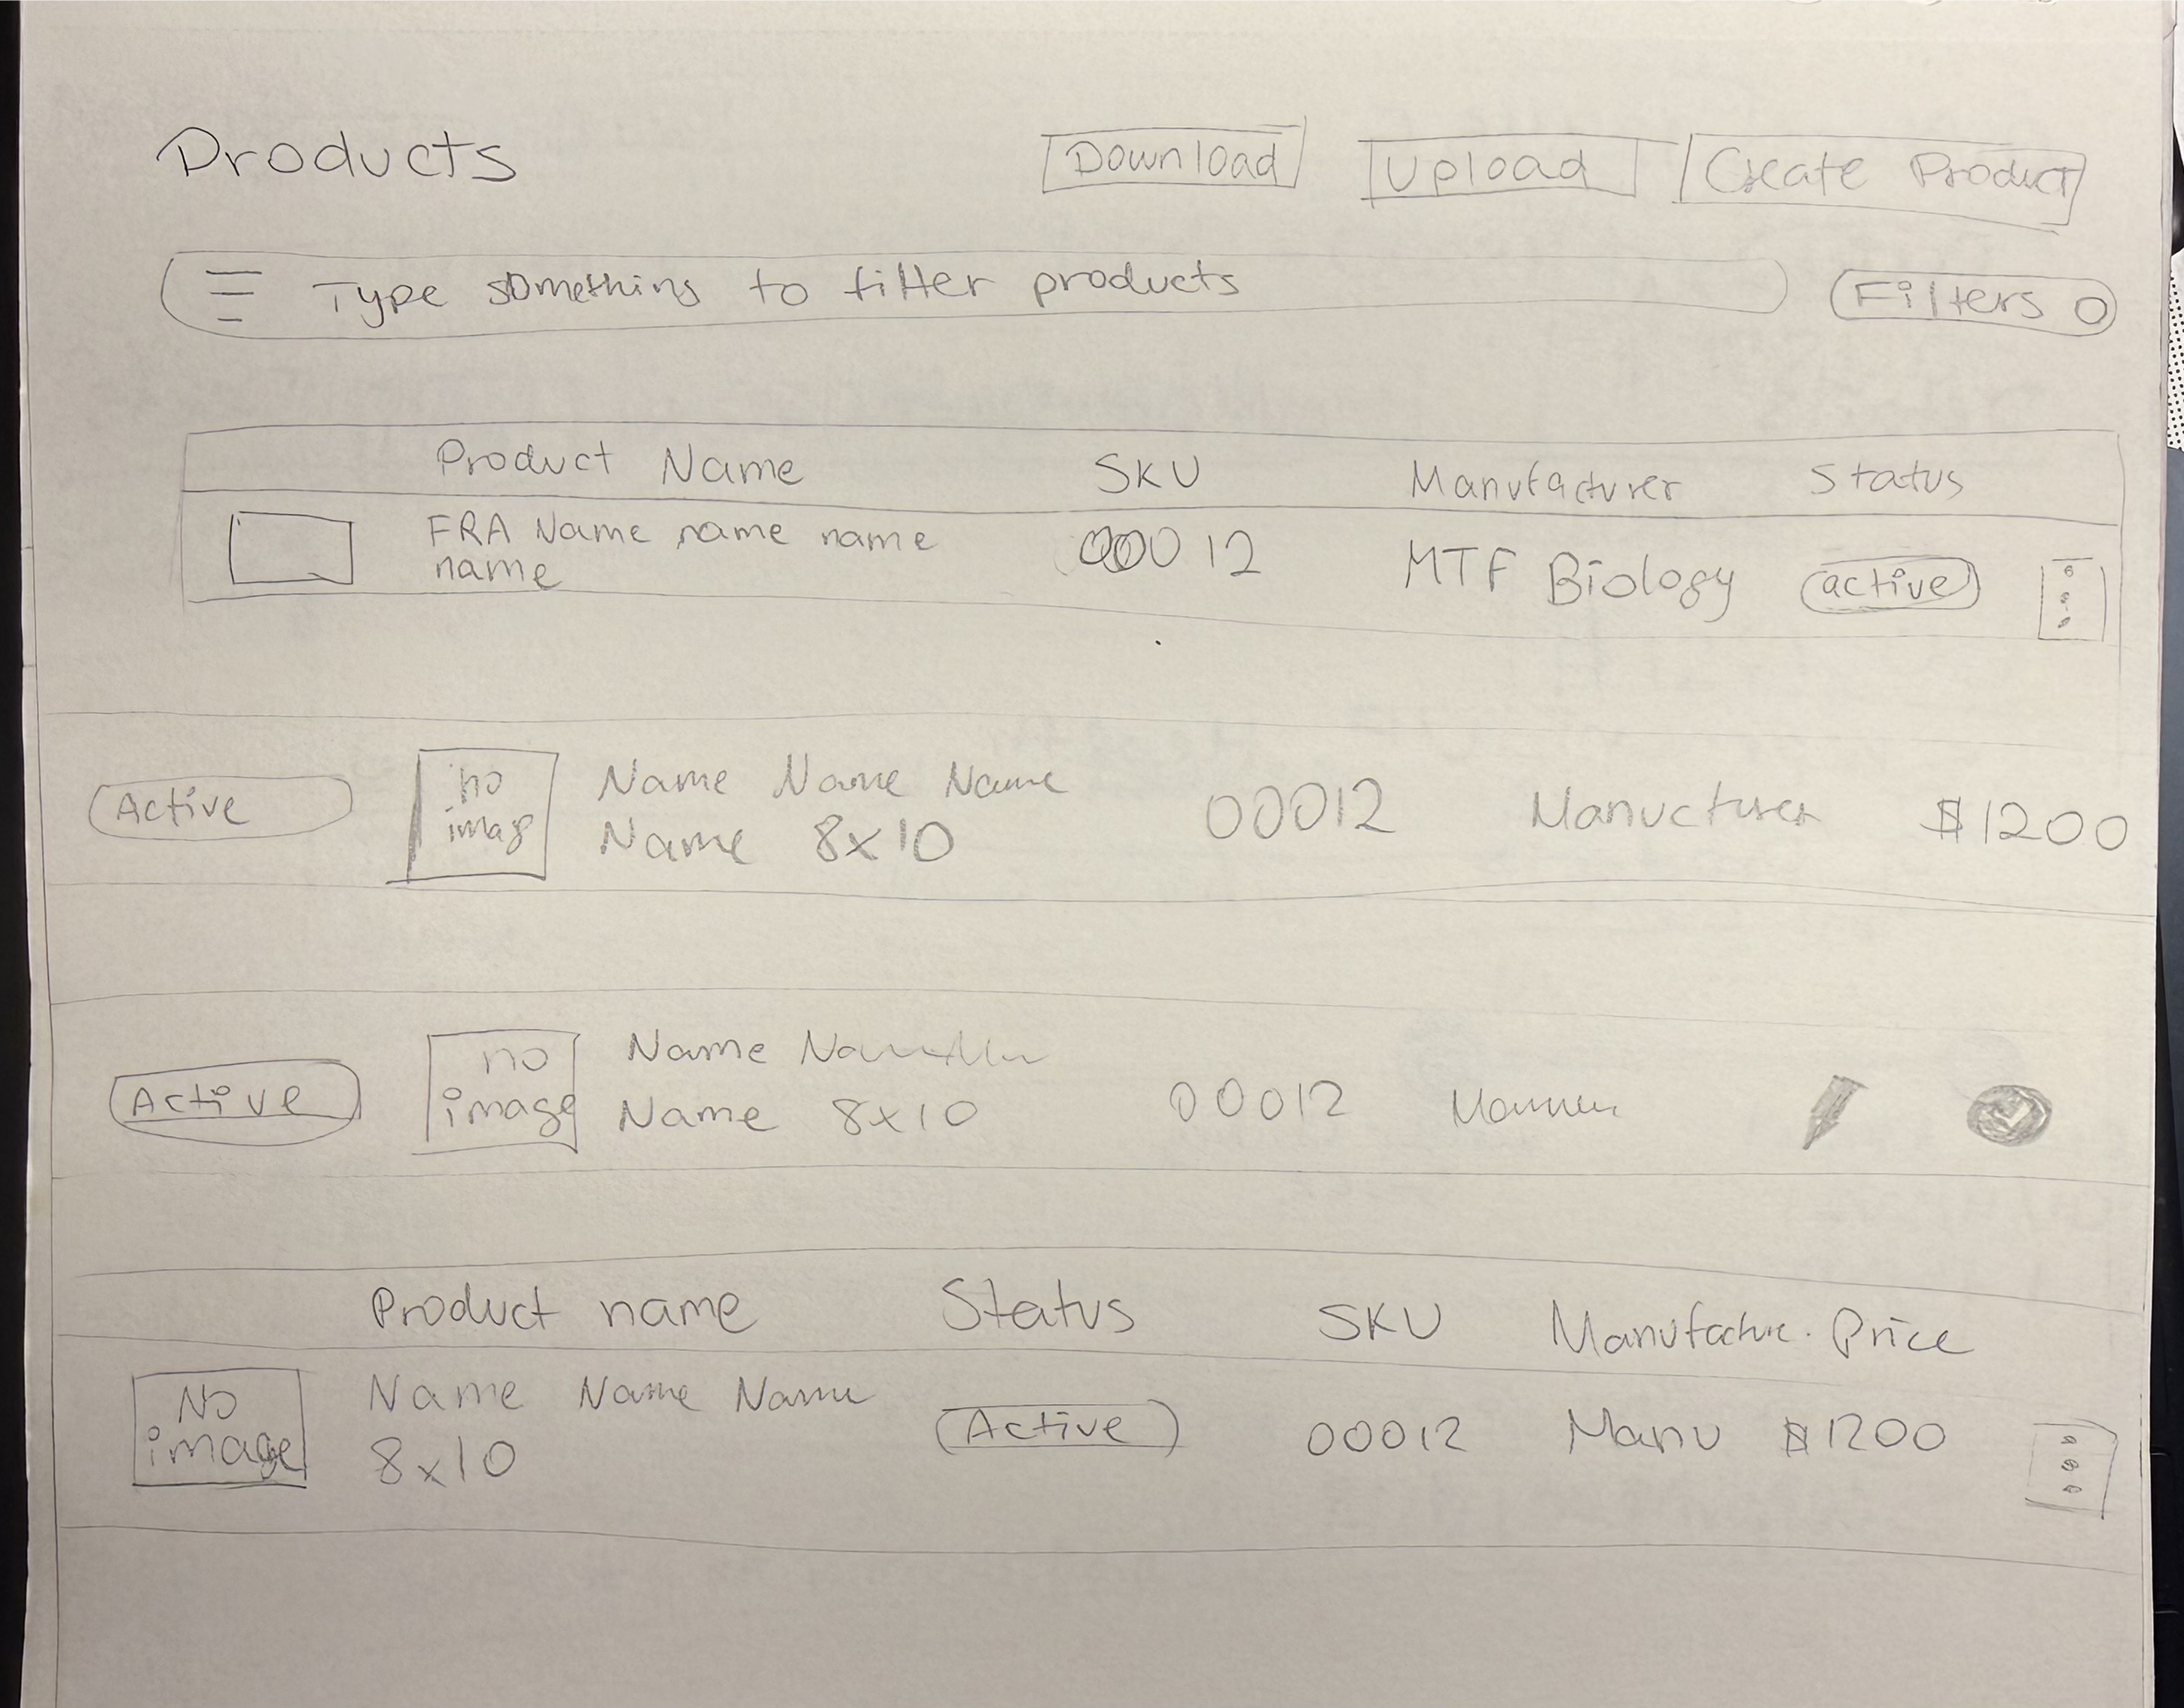 Products
Download
Upload
Create Product
Type something to filter products
Filters
Product Name SKU Manufacturer Status
FRA Name name name 00012 MTF Biology active
name
Active
no
imag
Name Name Name
Name 8x10
00012
Manucturer
$1200
Active
no
image
Name
Name 8x10
00012
Product name Status SKU Manufacture. Price
No
image
Name Name Name
8x10
Active
00012
Manu
$1200